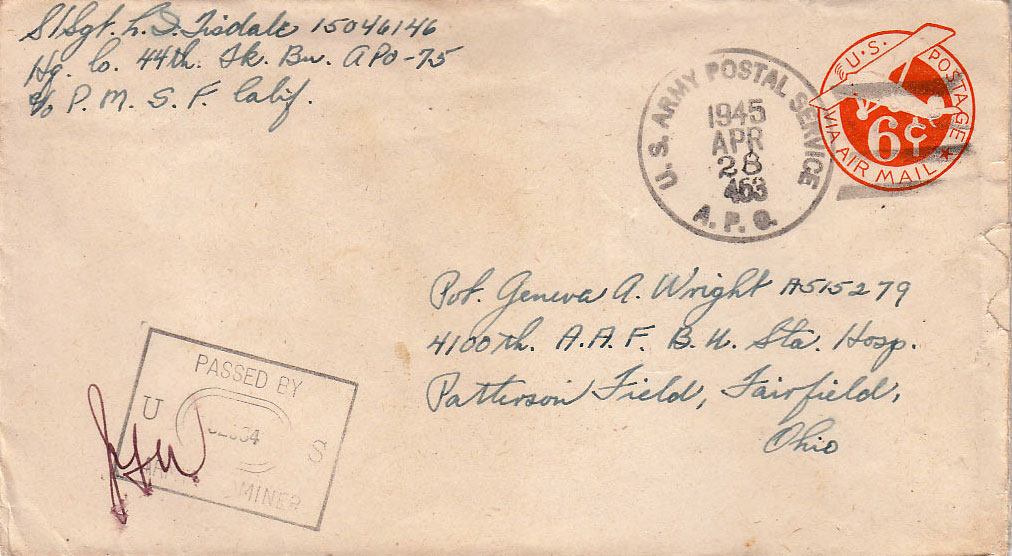 S/Sgt. L. I. Tisdale 15046146
Hq. Co. 44th. Tk. Bn. APO-75
c/o P. M. S. F. Calif.
U. S. ARMY POSTAL SERVICE
1945
APR
28
A. P. O.
U.S. POSTAGE
6¢
VIA AIR MAIL
Pvt. Geneva A. Wright A515279
4100th. A.A.F. B.U. Sta. Hosp.
Patterson Field, Fairfield,
Ohio
PASSED BY
U S